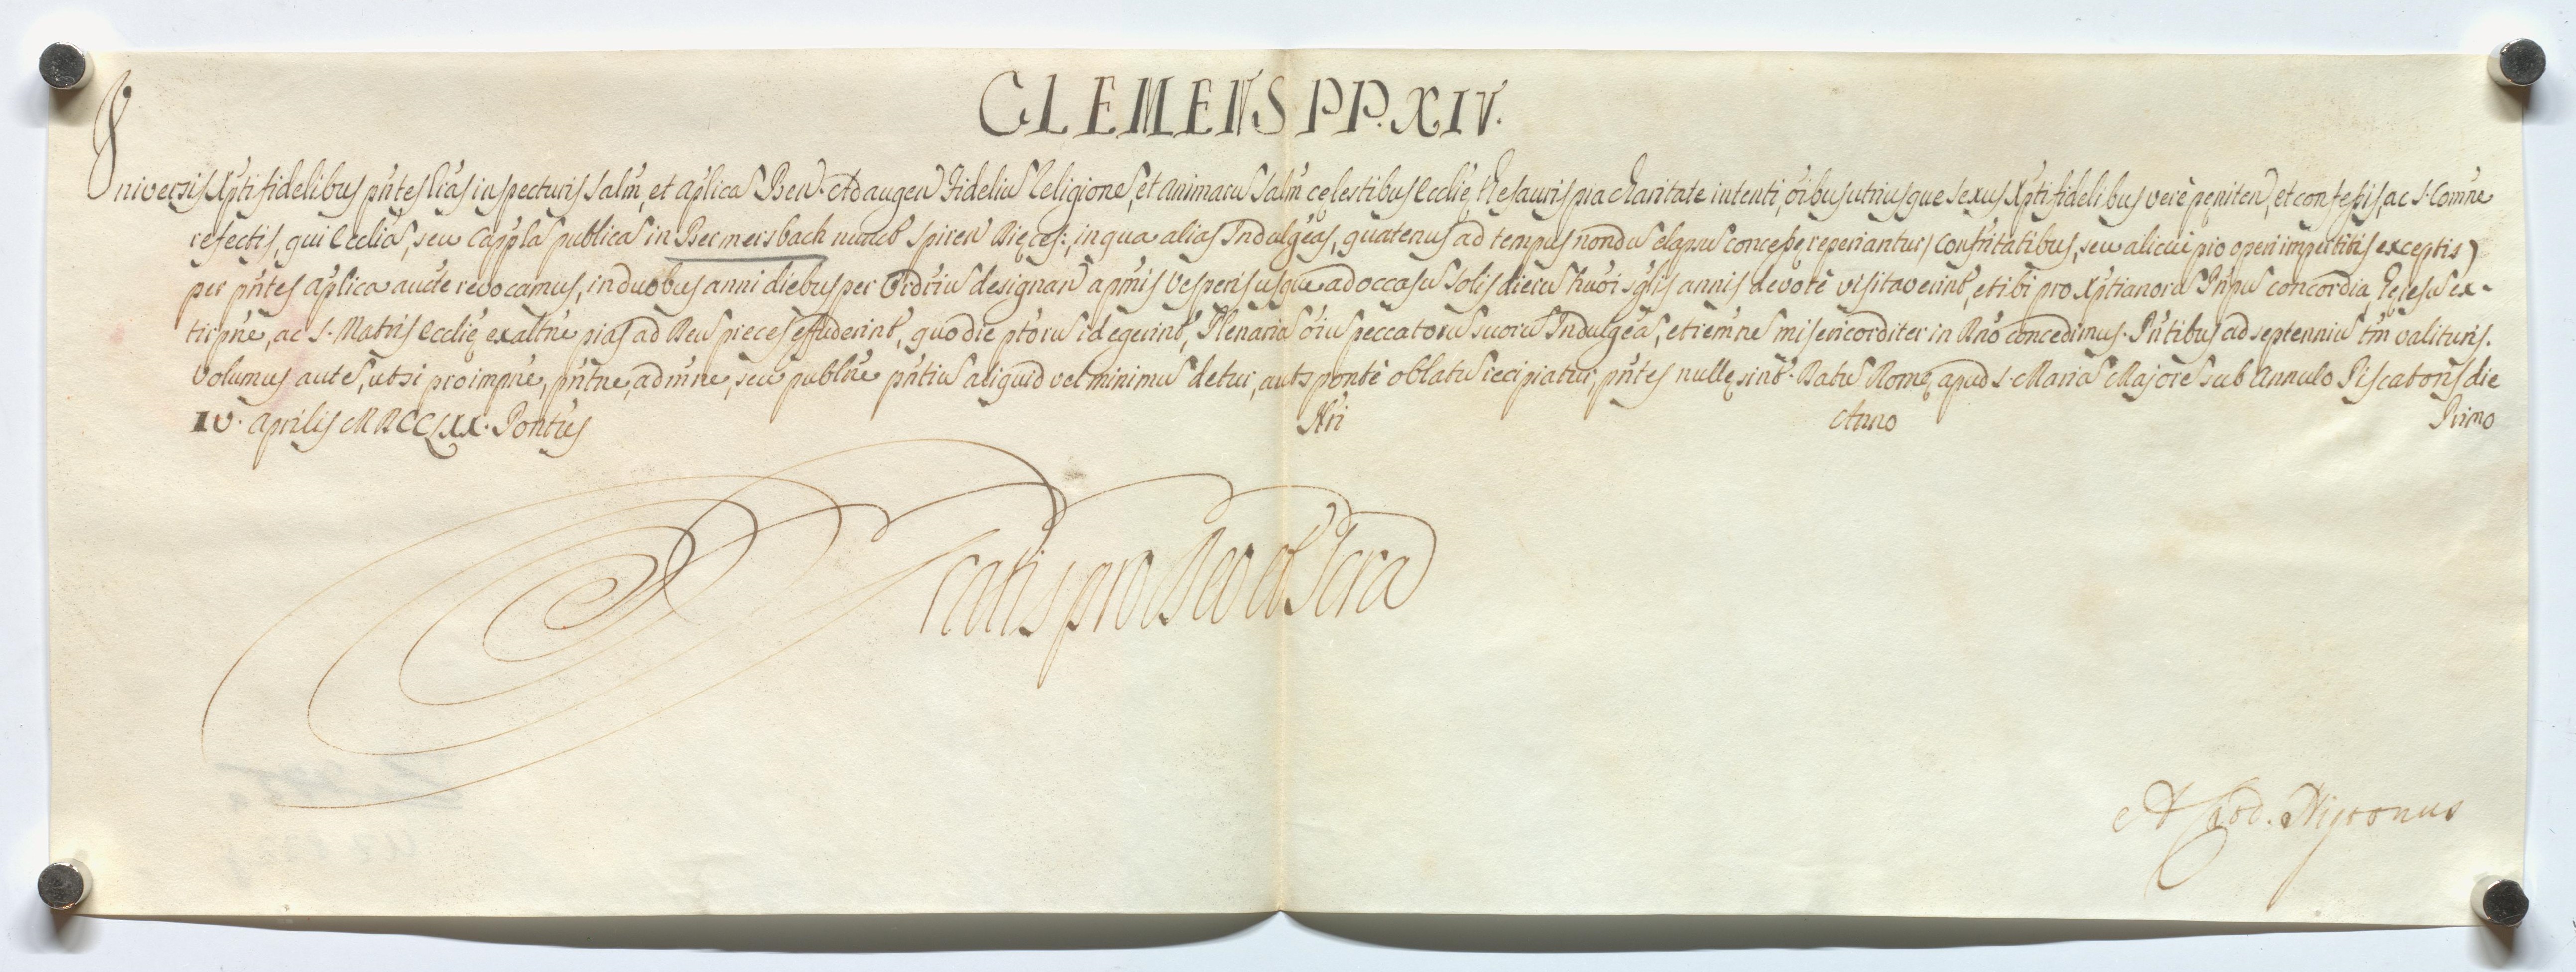 CLEMENS PP. XIV.
Universis Xpti fidelibus pñtes lr̃as inspecturis Salm̃, et ap̃licã Ben̄. Ad augen̄ fideliũ Religionẽ, et animarũ Salm̃ cęlestibus Ecclię Thesauris pia charitate intenti, õibus utriusque sexus Xpti fidelibus verè pęniten̄, et confessis, ac S. Comñe
refectis, qui Eccliã, seu Capplã publicã in Bermersbach nuncb̃ Spiren̄ Dięces:, in qua aliàs Indulgẽas, quatenus ad tempus nondũ elapsũ concessę reperiantur (confritatibus, seu alicui pio operi impertitis exceptis)
per pñtes ap̃licã aucte revocamus, in duobus anni diebus per Ordriũ designan̄ a pm̃is Vesperis usque ad occasũ Solis dierũ huõi sg̃lis annis devotè visitaverint, et ibi pro Xptianorũ Pñpũ concordia, hęresũ ex-
tirpñe, ac S. Matris Ecclię exaltñe pias ad Deũ preces effuderint, quo die ptõrũ id egerint, Plenariã õiũ peccatorũ suorũ Indulgẽas, et remñe misericorditer in Dño concedimus. Pñtibus ad septenniũ tm̃ valituris.
Volumus autẽ, ut si pro impñe, pñtñe, admñe, seu publñe pñtiũ aliquid vel minimũ detur, aut sponte oblatũ recipiatur, pñtes nullę sint. Datũ Romę apud S. Mariã Majorẽ sub Annulo Piscatoris die
IV. Aprilis MDCCLXX. Pontũs Nri Anno Primo
Gratis pro Deo et Scra
A Card. Nigronus